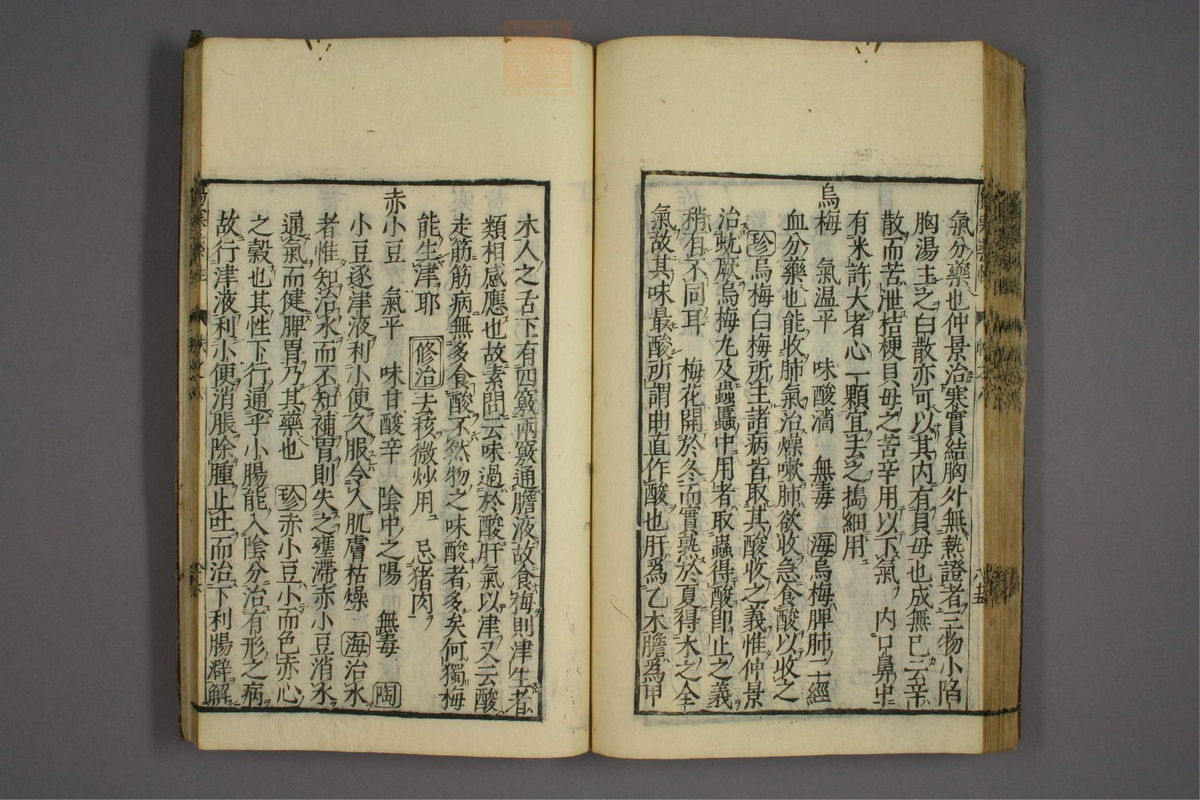 氣分藥也仲景治寒實結胸外無熱證者三物小陷
胸湯主之白散亦可以其内有貝毋也成無已云辛
散而苦泄桔梗貝毋之苦辛用以下氣　内口鼻中
有米許大者心一顆宜去之搗細用
烏梅　氣溫平　味酸濇　無毒　海烏梅脾肺二經
血分藥也能收肺氣治燥嗽肺欲收急食酸以收之
珍烏梅白梅所主諸病皆取其酸收之義惟仲景
治蚘厥烏梅丸及蟲䘌中用者取蟲得酸卽止之義
稍有不同耳　梅花開於冬而實熟於夏得木之全
氣故其味最酸所謂曲直作酸也肝爲乙木膽爲甲
木人之舌下有四竅兩竅通膽液故食梅則津生者
類相感應也故素問云味過於酸肝氣以津又云酸
走筋筋病無多食酸不然物之味酸者多矣何獨梅
能生津耶　修治去核微炒用　忌猪肉
赤小豆　氣平　味甘酸辛　陰中之陽　無毒　陶
小豆逐津液利小便久服令人肌膚枯燥　海治水
者惟知治水而不知補胃則失之壅滯赤小豆消水
通氣而健脾胃乃其藥也　珍赤小豆小而色赤心
之穀也其性下行通乎小腸能入陰分治有形之病
故行津液利小便消脹除腫止吐而治下利腸澼解